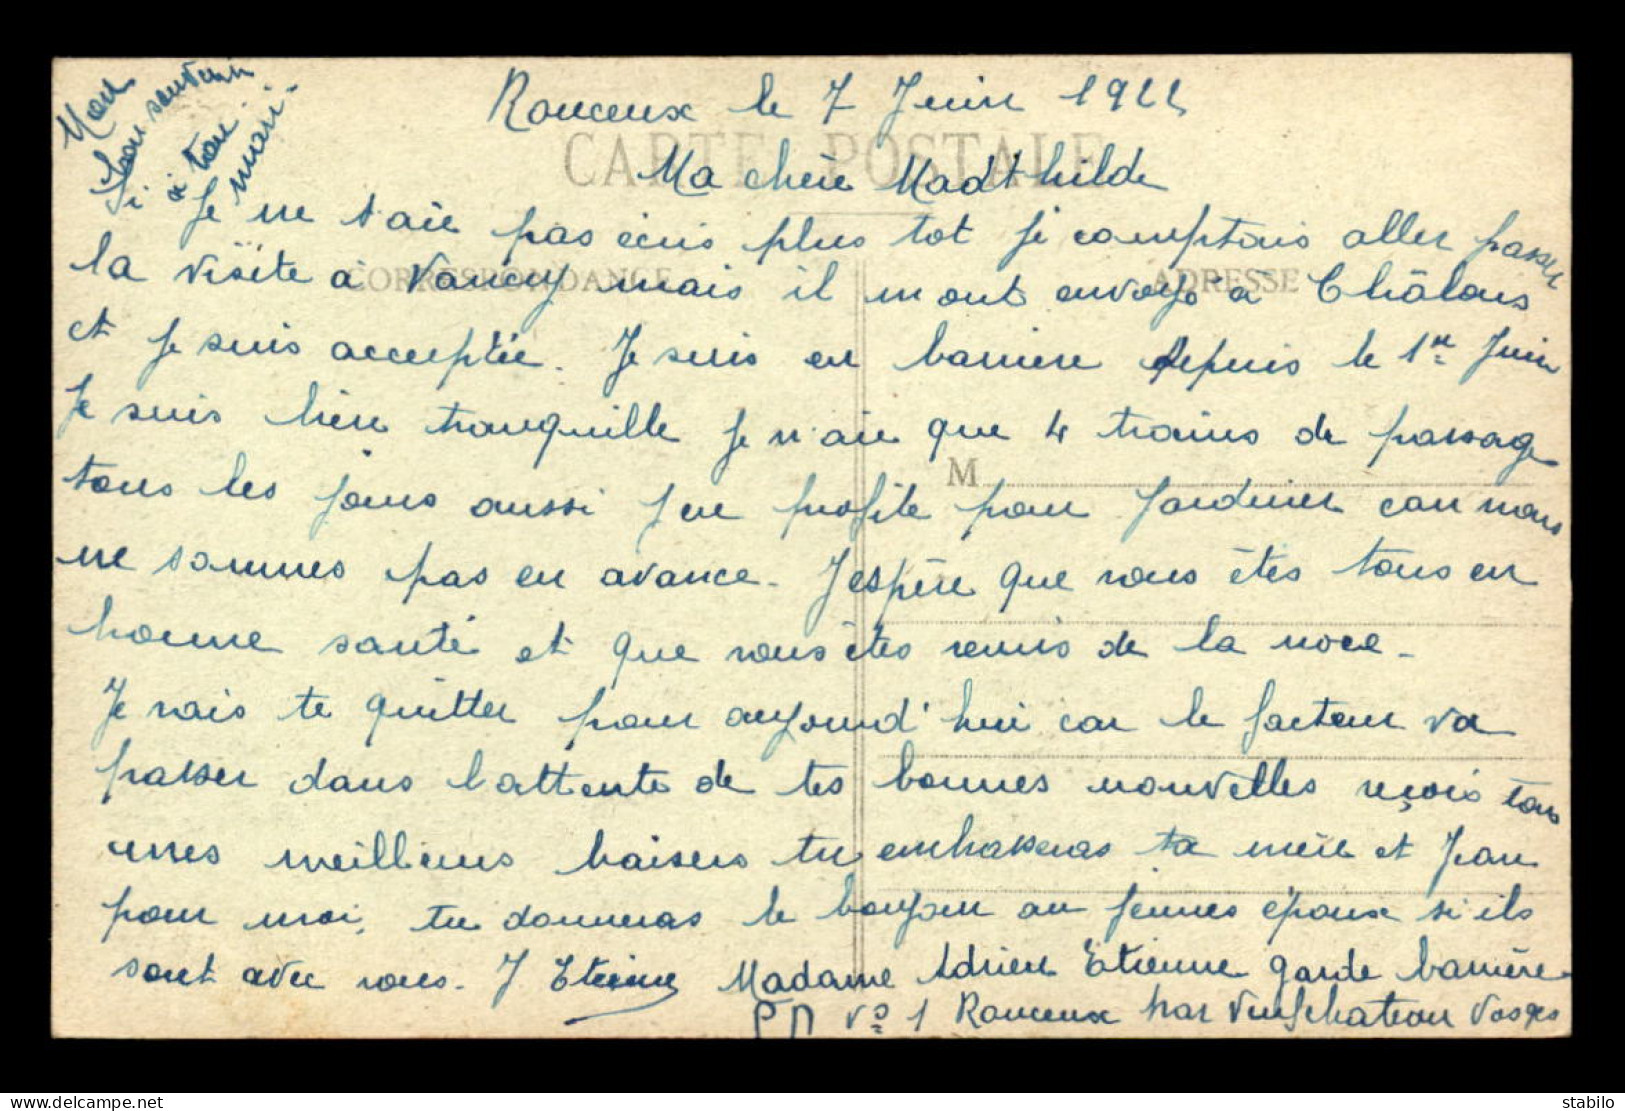 Mon
bon souvenir
à ton
mari.
Rouceux le 7 Juin 1922
CARTE POSTALE
Ma chère Madthilde
Si Je ne t aie pas écris plus tot Je comptais aller passer
CORRESPONDANCE
ADRESSE
la visite à Nancy mais il m ont envoyé à Châlons
et Je suis acceptée. Je suis en barriere depuis le 1er Juin
Je suis bien tranquille Je n aie que 4 trains de passage
M
tous les jours aussi J en profite pour Jardiner car nous
ne sommes pas en avance. J'espère que vous êtes tous en
bonne santé et que vous êtes remis de la noce.
Je vais te quitter pour aujourd'hui car le facteur va
passer dans l'attente de tes bonnes nouvelles reçois tous
mes meilleurs baisers tu embrasseras ta mère et Jean
pour moi, tu donneras le bonjour au jeunes époux si ils
sont avec vous. J. Etienne Madame Adrien Etienne garde barrière
PN no 1 Rouceux par Neufchateau Vosges
www.delcampe.net
stabilo